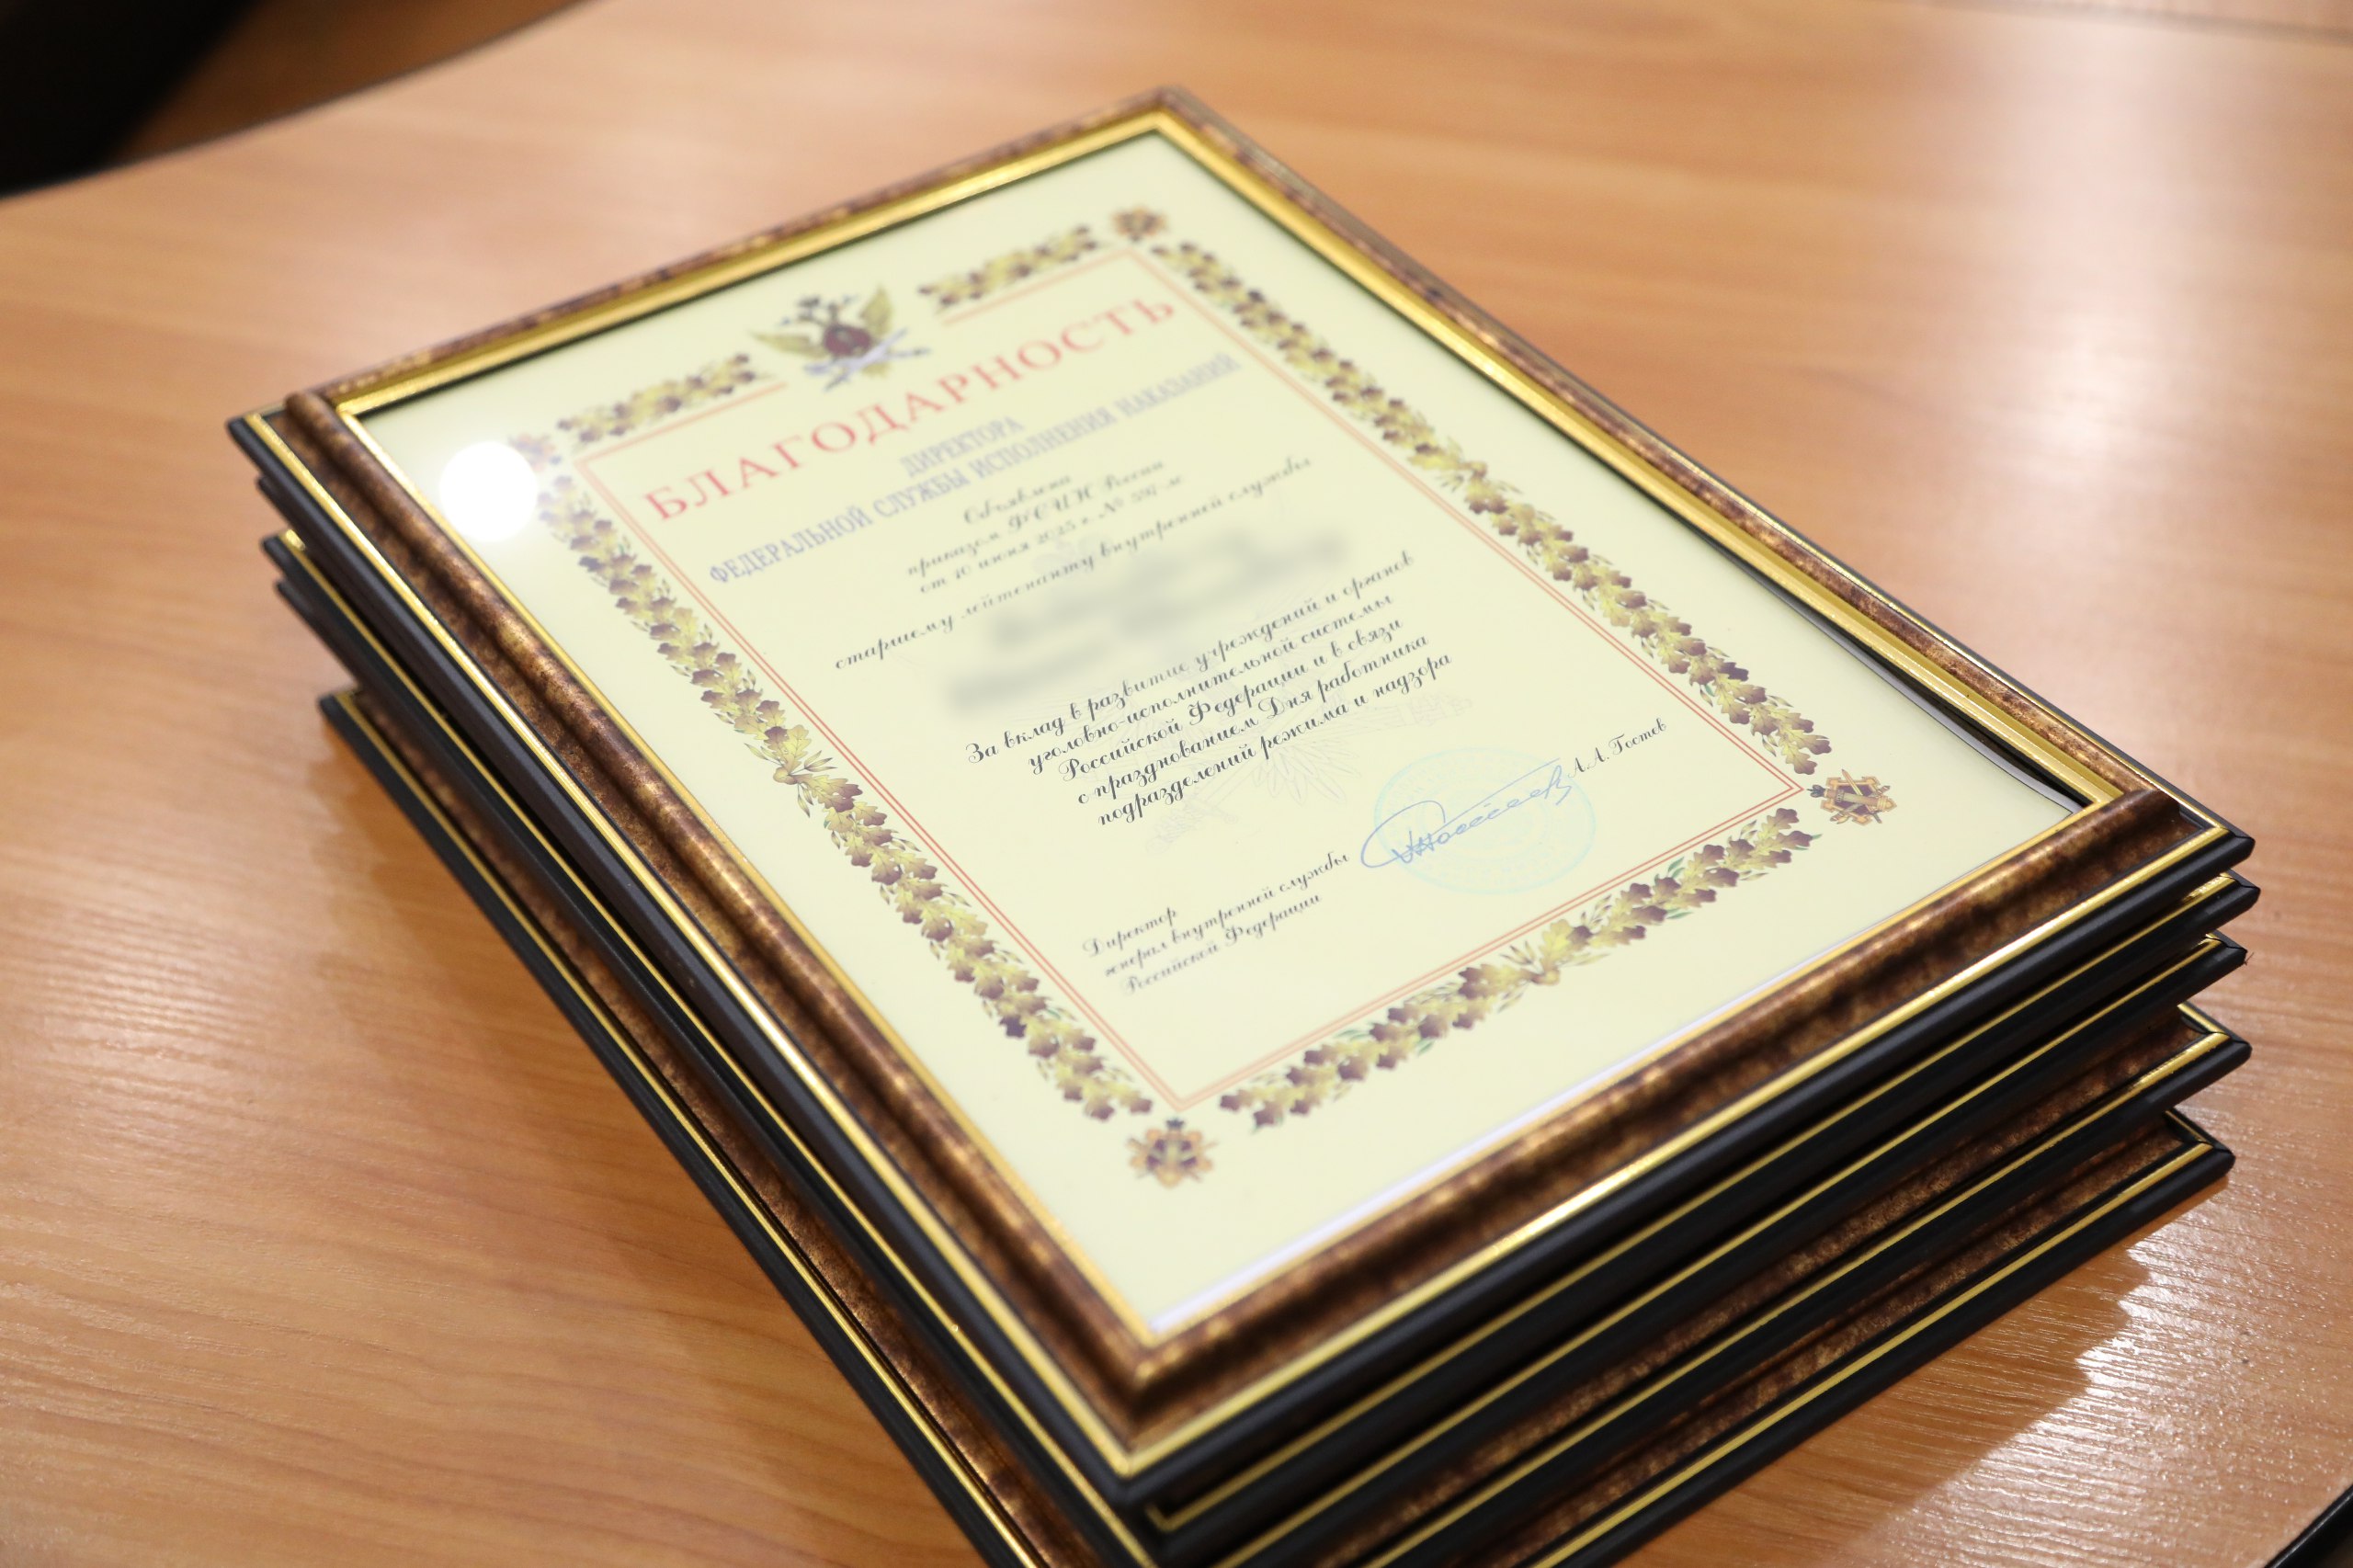 БЛАГОДАРНОСТЬ
ДИРЕКТОРА
ФЕДЕРАЛЬНОЙ СЛУЖБЫ ИСПОЛНЕНИЯ НАКАЗАНИЙ
Объявлена
приказом ФСИН России
от 10 июня 2025 г. № 597-лс
старшему лейтенанту внутренней службы
За вклад в развитие учреждений и органов
уголовно-исполнительной системы
Российской Федерации и в связи
с празднованием Дня работника
подразделений режима и надзора
Директор
генерал внутренней службы
Российской Федерации
А.А.Гостев